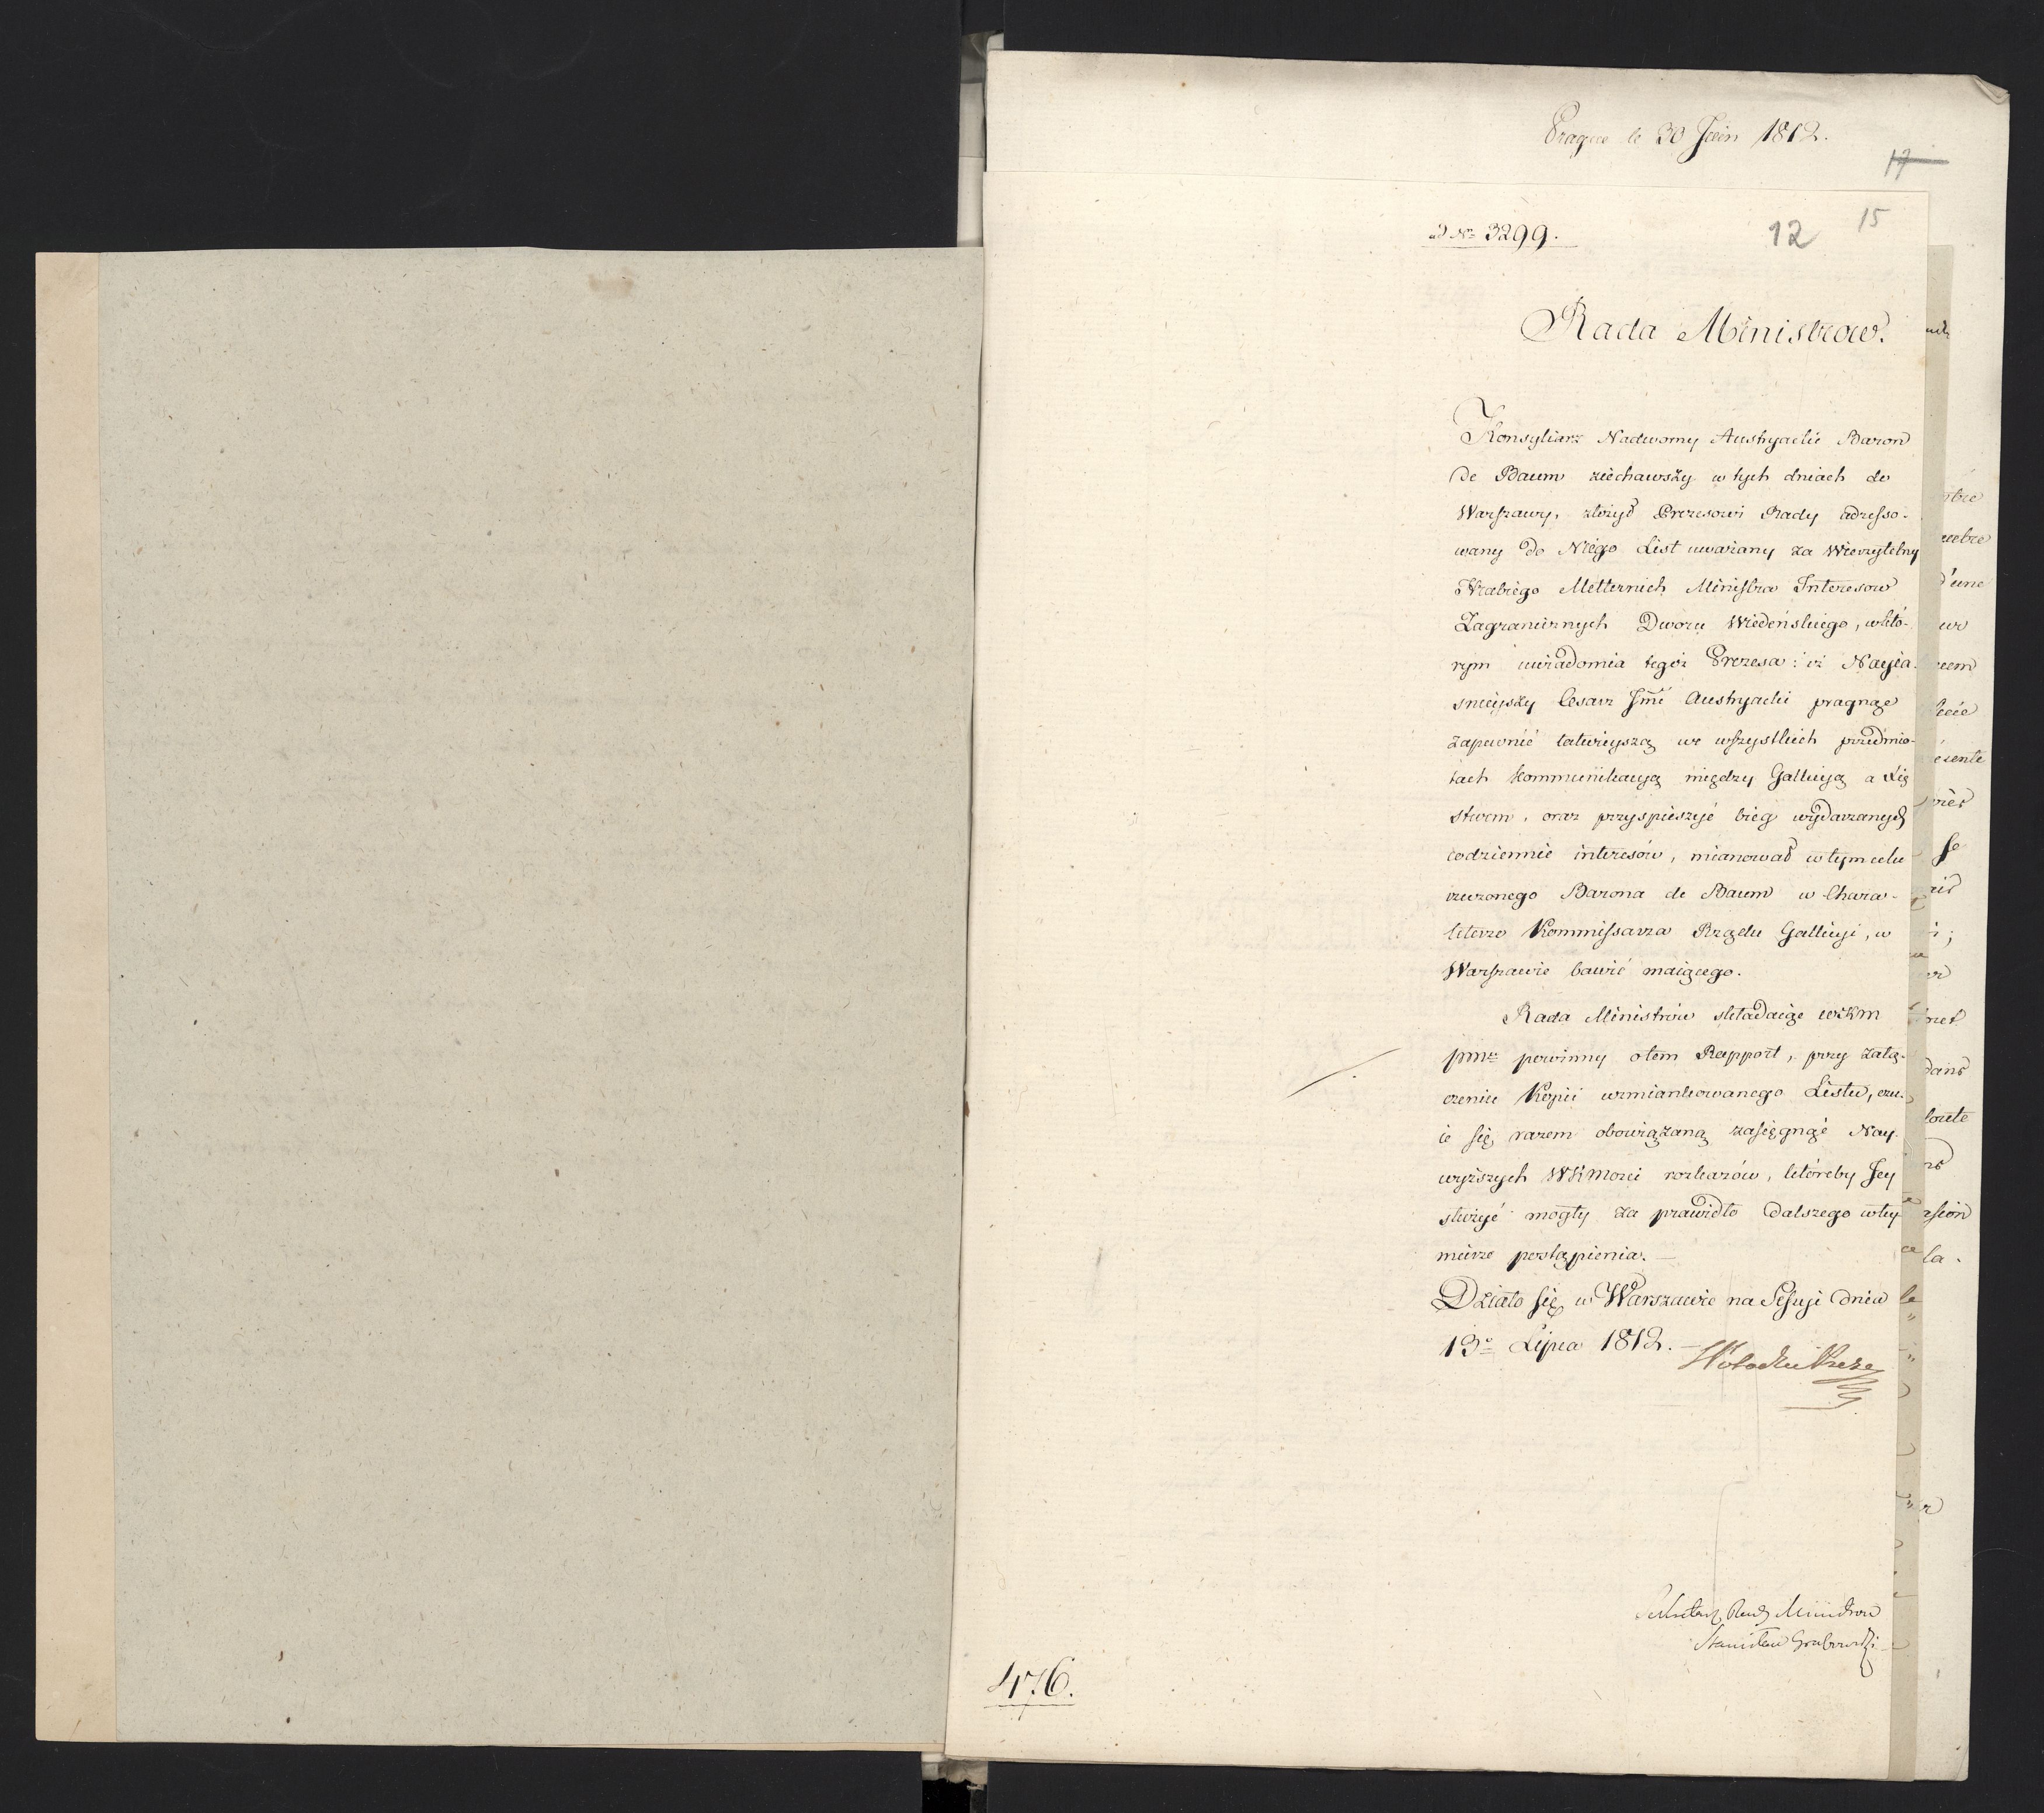 Prague le 30 Juin 1812.
17
15
12
ad No 3299.
Rada Ministrow.
Konsyliarz Nadworny Austryacki Baron
de Baum ziechawszy w tych dniach do
Warszawy, złożył Prezesowi Rady adresso-
wany do Niego List uważany za Wierzytelny
Hrabiego Metternich Ministra Interesow
Zagranicznych Dworu Wiedeńskiego, w któ-
rym uwiadomia tegoż Prezesa: iż Nayia-
snieyszy Cesarz Jmć Austryacki pragnąc
zapewnić łatwieyszą we wszystkich przedmio-
tach kommunikacyą między Gallicyą a Xię
stwem, oraz przyspieszyć bieg wydarzanych
codziennie interesów, mianował w tym celu
rzeczonego Barona de Baum w Chara-
kterze Kommissarza Rządu Gallicyi, w
Warszawie bawić maiącego.
Rada Ministrów składaiąc WKM
pmu powinny o tem Rapport, przy załą-
czeniu Kopii wzmiankowanego Listu, czu-
ie się razem obowiązaną zasięgnąć Nay-
wyższych WKMości rozkazów, któreby Jey
służyć mogły za prawidło dalszego w tey
mierze postąpienia.
Działo się w Warszawie na Sessyi dnia
13o Lipca 1812.
Sekretarz Rady Ministrow
Stanisław Grabowski
476.